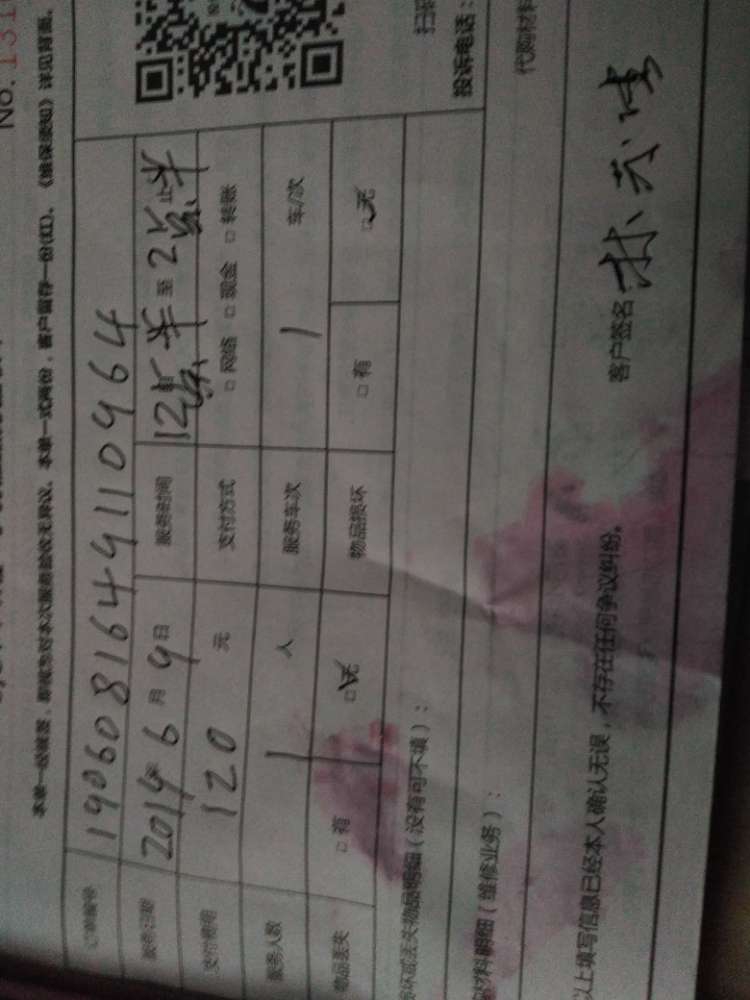 No. 131
本单一经签字，即视为对本次服务验收无异议。本单一式两份，客户留存一份(红)。《维保须知》详见背面。
订单编号 19060816449110964
服务日期 2019年6月9日 服务时间 12点半至2点半止
支付费用 120 元 支付方式 □ 网络 □ 现金 □ 转账
服务人数 1 人 服务车次 1 车/次
物品丢失 □ 有 □ 无 物品损坏 □ 有 □ 无
损坏或丢失物品明细（没有可不填）：
材料明细（维修业务）：
扫码
投诉电话：
代购材料
以上填写信息已经本人确认无误，不存在任何争议纠纷。
客户签名